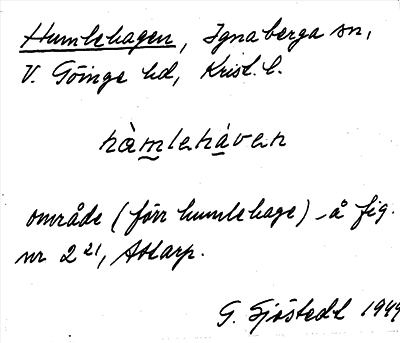 Humlehagen, Ignaberga sn,
V. Göinge hd, Krist. l.
hàmlehàven
område (förr humlehage) på fig.
nr 2²¹, Attarp.
G. Sjöstedt 1944